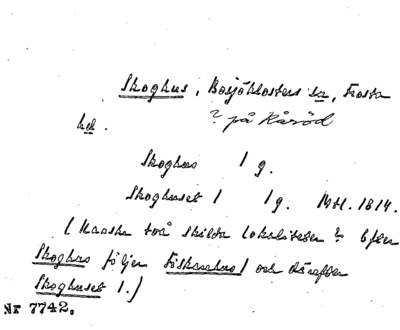 Skoghus, Bosjöklosters sn, Frosta
hd.
? på Kåröd
Skoghus 1 g.
Skoghuset 1 1g. Mtl. 1814.
(Kanske två skilda lokaliteter? Efter
Skoghus följer Fiskarehus) och därefter
Skoghuset 1.)
Nr 7742.